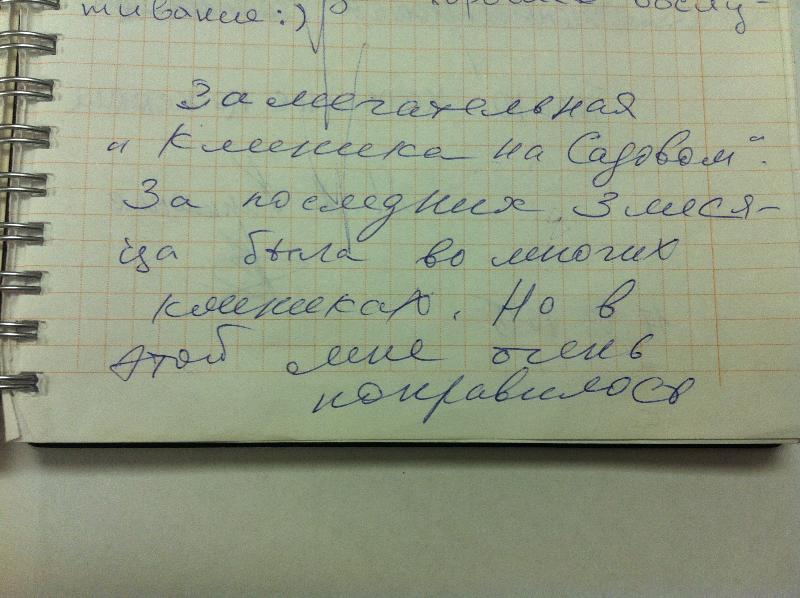 хорошее обслу-
живание :)
Замечательная
"Клиника на Садовом".
За последних 3 меся-
ца была во многих
клиниках. Но в
этой мне очень
понравилось